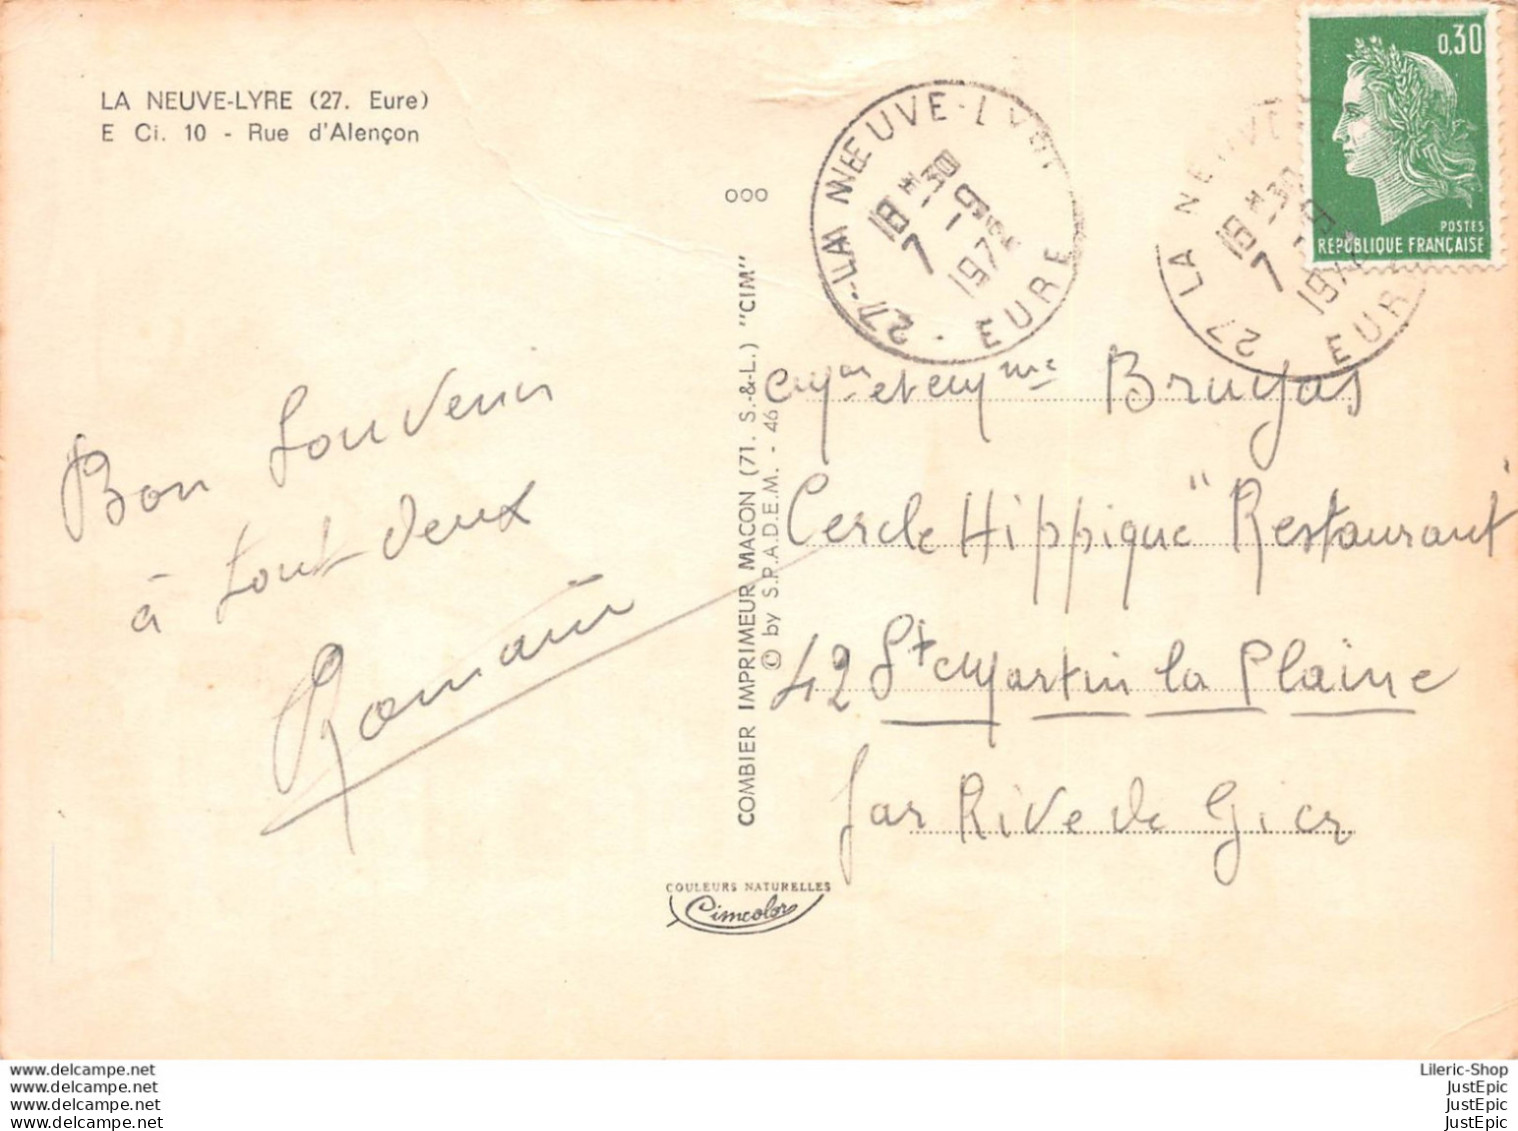 LA NEUVE-LYRE (27. Eure)
E Ci. 10 - Rue d'Alençon
Bon Souvenir
à tout deux
Romain
ooo
COMBIER IMPRIMEUR MACON (71. S.-&-L.) "CIM"
© by S.P.A.D.E.M. - 46
COULEURS NATURELLES
Cimcolor
0,30
POSTES
REPUBLIQUE FRANÇAISE
27 LA NEUVE-LYRE EURE
18 H 30
7 - 9
27 LA NEUVE
EURE
18 H 30
7 - 9
Mr et Mme Bruyas
Cercle Hippique "Restaurant"
42 St Martin la Plaine
par Rive de Gier
www.delcampe.net
www.delcampe.net
www.delcampe.net
www.delcampe.net
Lileric-Shop
JustEpic
JustEpic
JustEpic